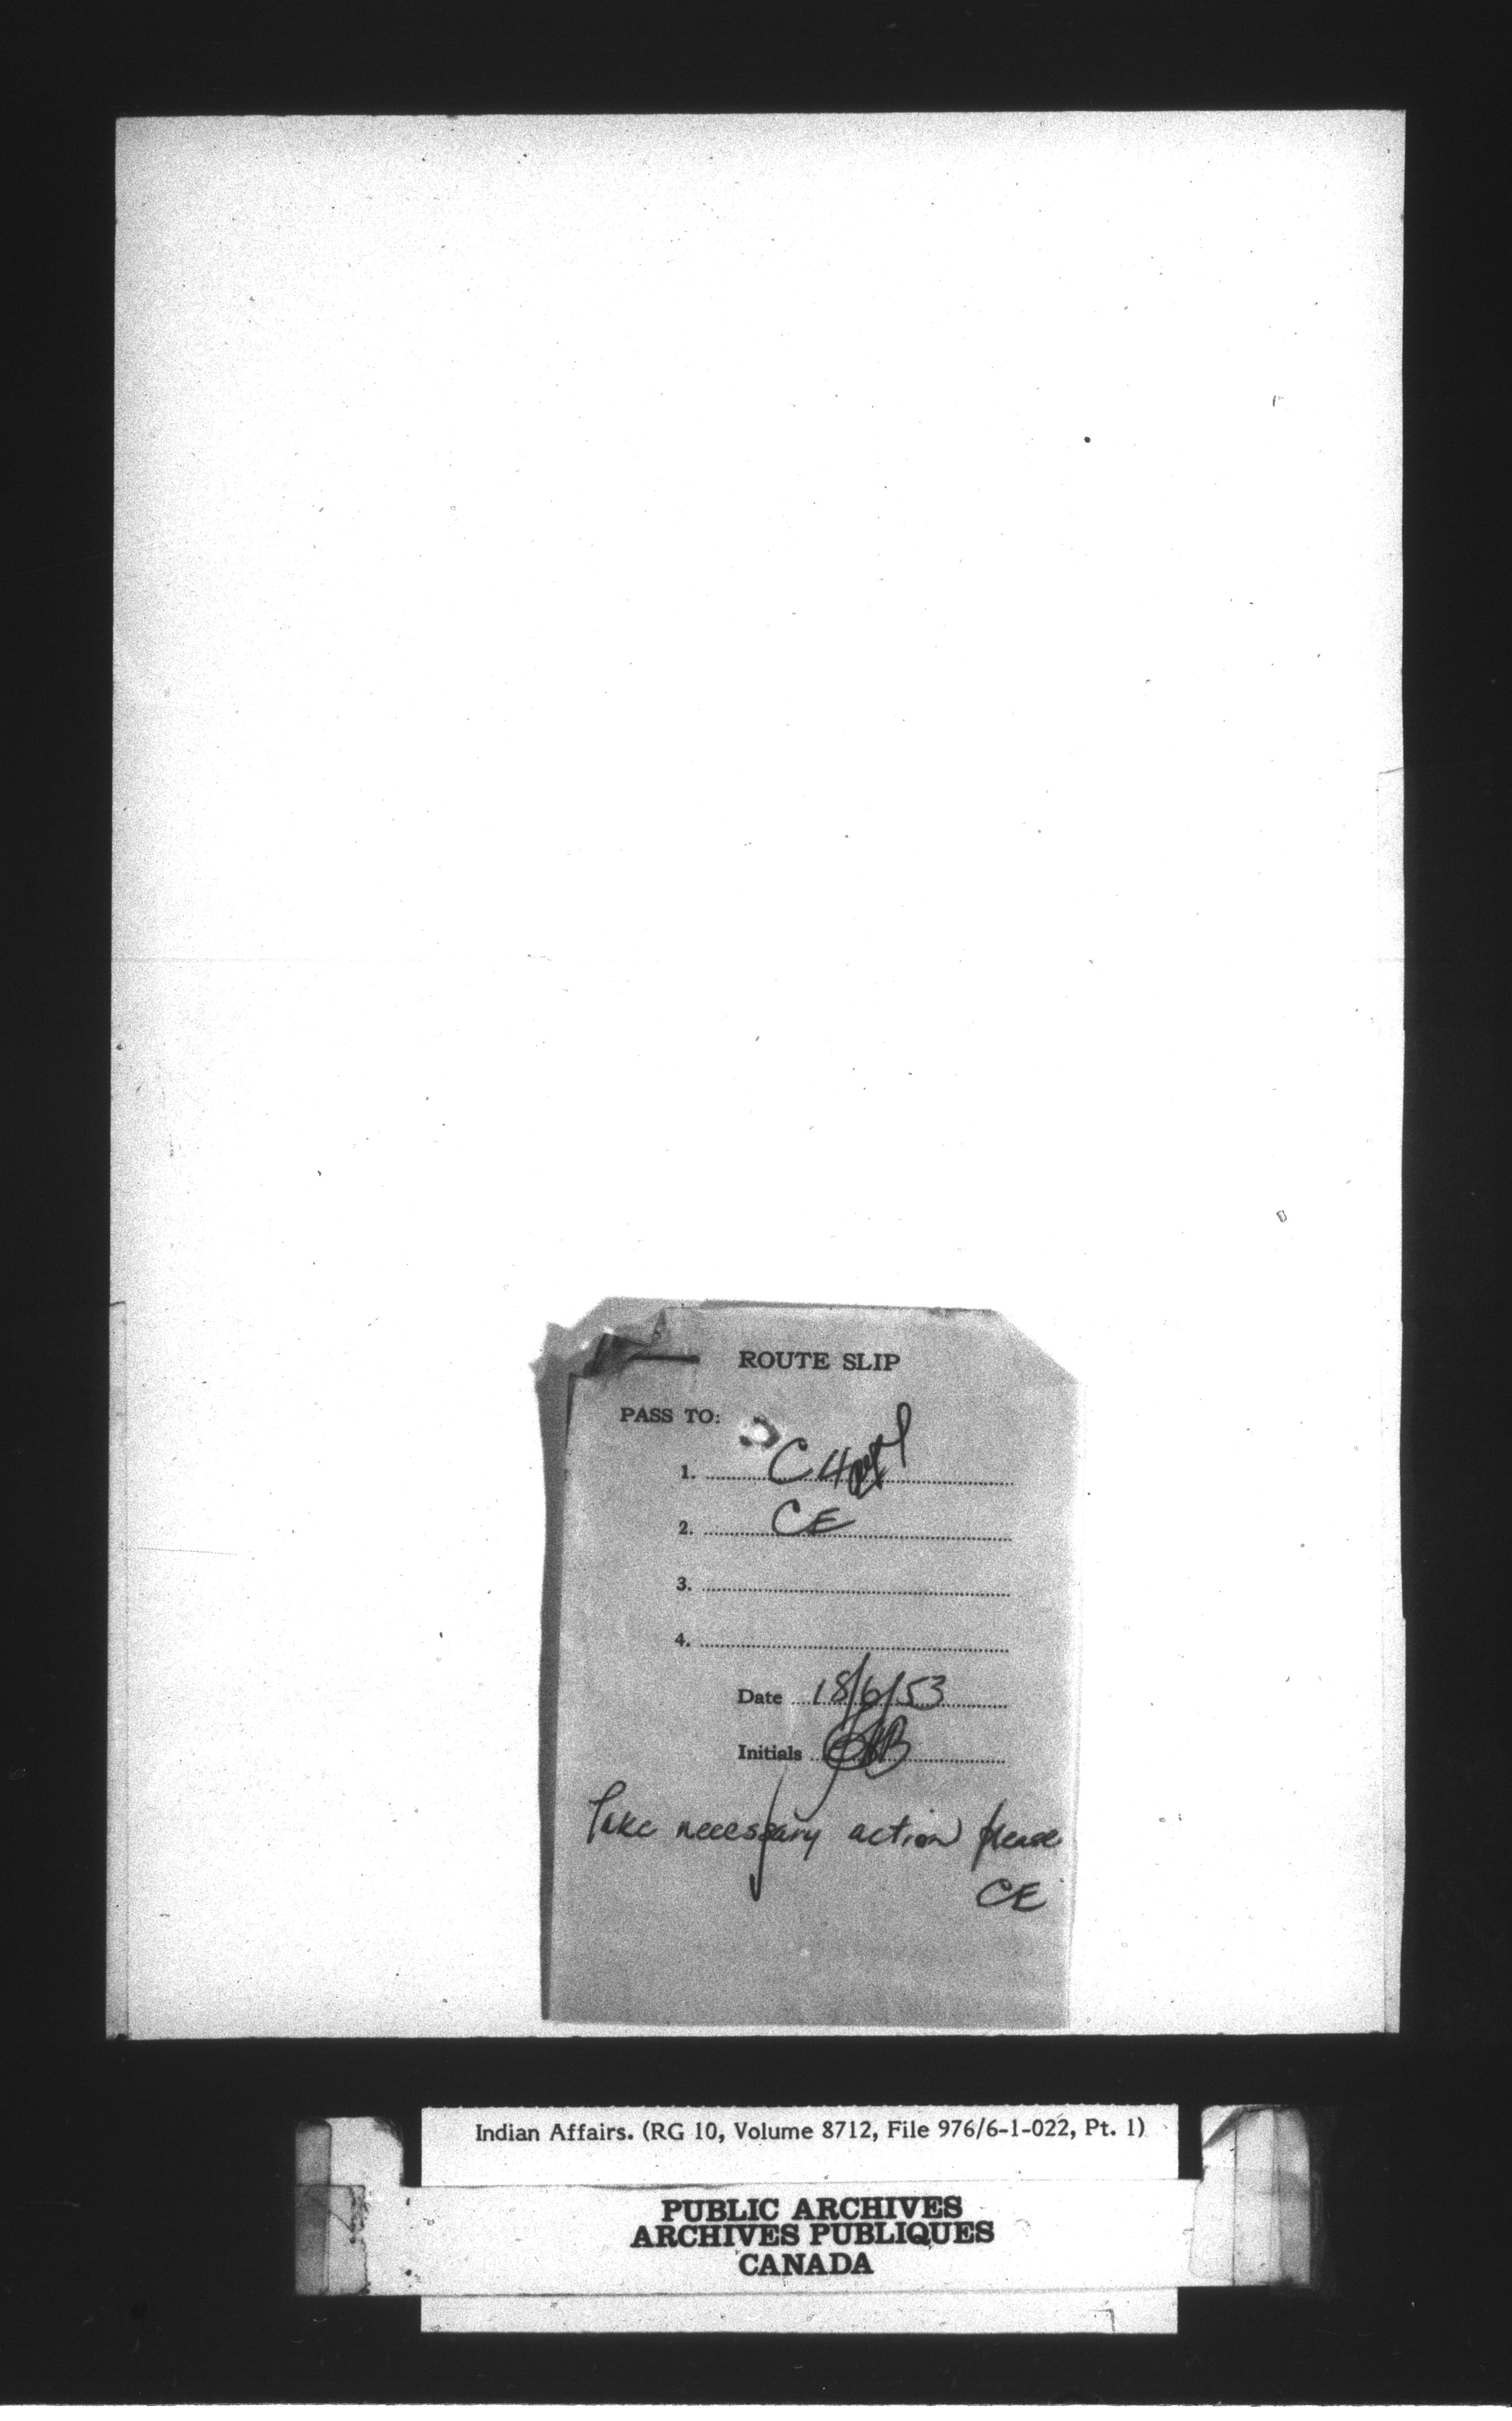 ROUTE SLIP
PASS TO:
1.
2. CE
3.
4.
Date 18/6/53
Initials
Take necessary action please
CE
Indian Affairs. (RG 10, Volume 8712, File 976/6-1-022, Pt. 1)
PUBLIC ARCHIVES
ARCHIVES PUBLIQUES
CANADA